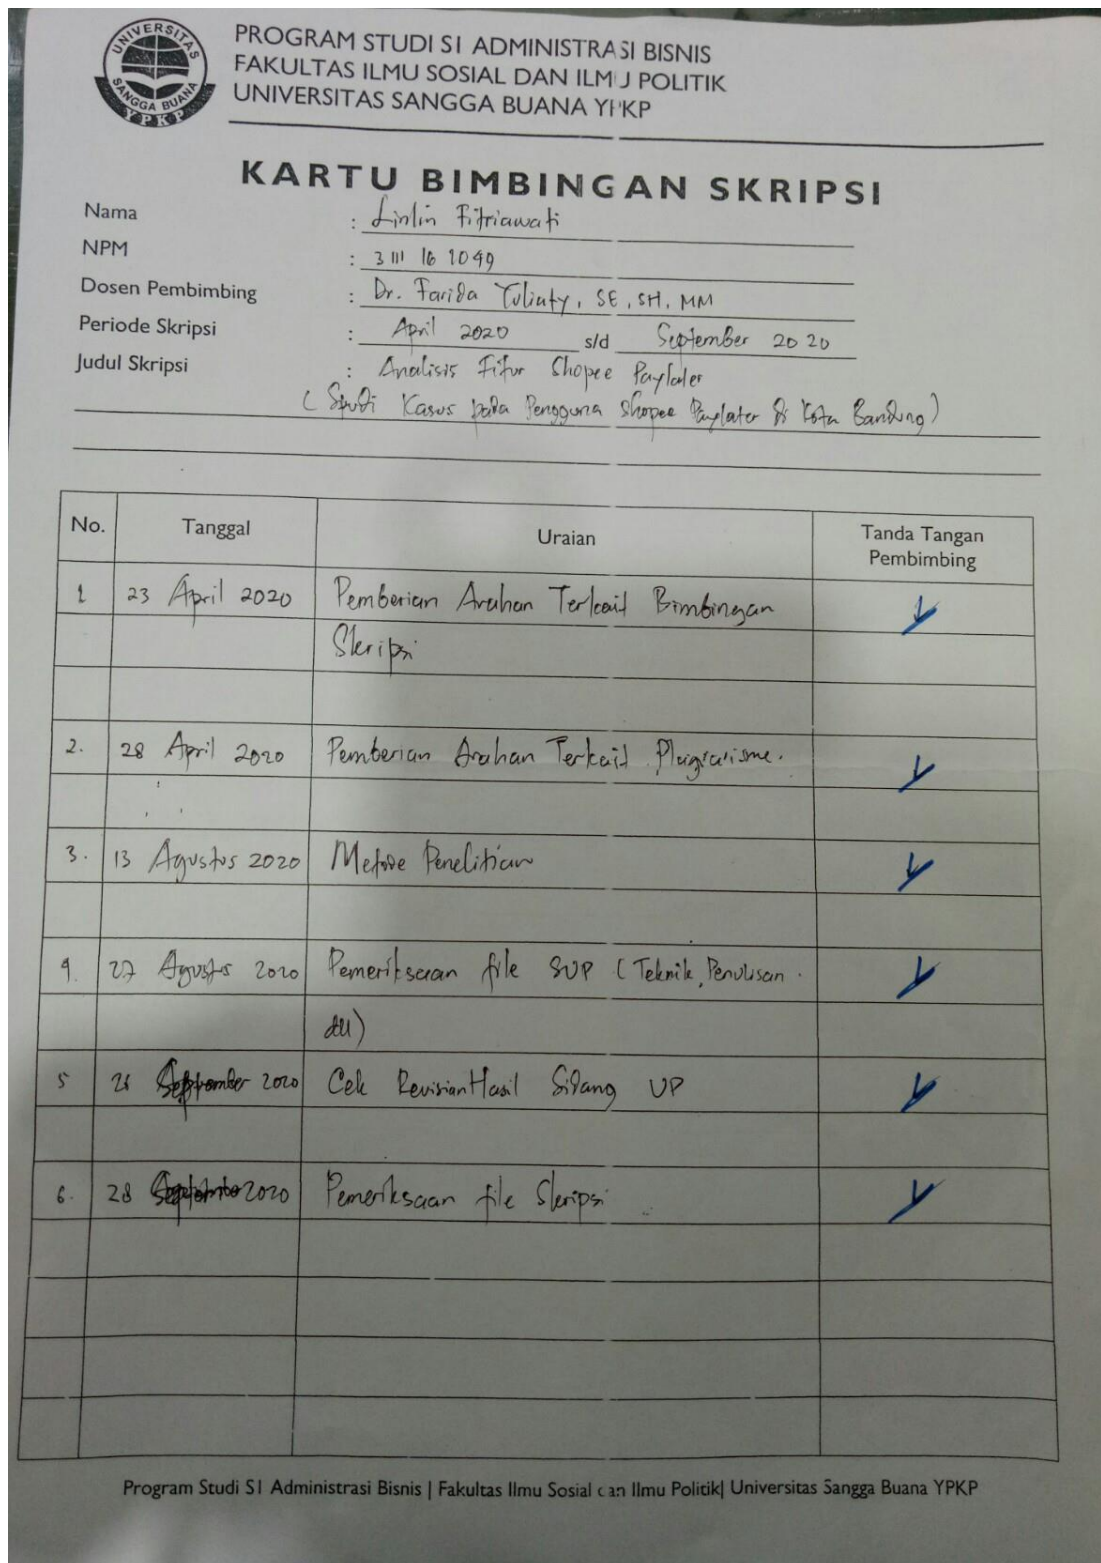 UNIVERSITAS
SANGGA BUANA
YPKP
PROGRAM STUDI S1 ADMINISTRASI BISNIS
FAKULTAS ILMU SOSIAL DAN ILMU POLITIK
UNIVERSITAS SANGGA BUANA YPKP
KARTU BIMBINGAN SKRIPSI
Nama : Linlin Fitriawati
NPM : 3111 16 1049
Dosen Pembimbing : Dr. Farida Yuliaty, SE, SH, MM
Periode Skripsi : April 2020 s/d September 2020
Judul Skripsi : Analisis Fitur Shopee Paylater
(Studi Kasus pada Pengguna Shopee Paylater di Kota Bandung)
No. Tanggal Uraian Tanda Tangan
Pembimbing
1 23 April 2020 Pemberian Arahan Terkait Bimbingan
Skripsi
2. 28 April 2020 Pemberian Arahan Terkait Plagiarisme.
3. 13 Agustus 2020 Metode Penelitian
4. 27 Agustus 2020 Pemeriksaan file SUP (Teknik Penulisan
dll)
5 September 2020 Cek Revisian Hasil Sidang UP
6. 28 2020 Pemeriksaan file Skripsi
Program Studi S1 Administrasi Bisnis | Fakultas Ilmu Sosial dan Ilmu Politik| Universitas Sangga Buana YPKP